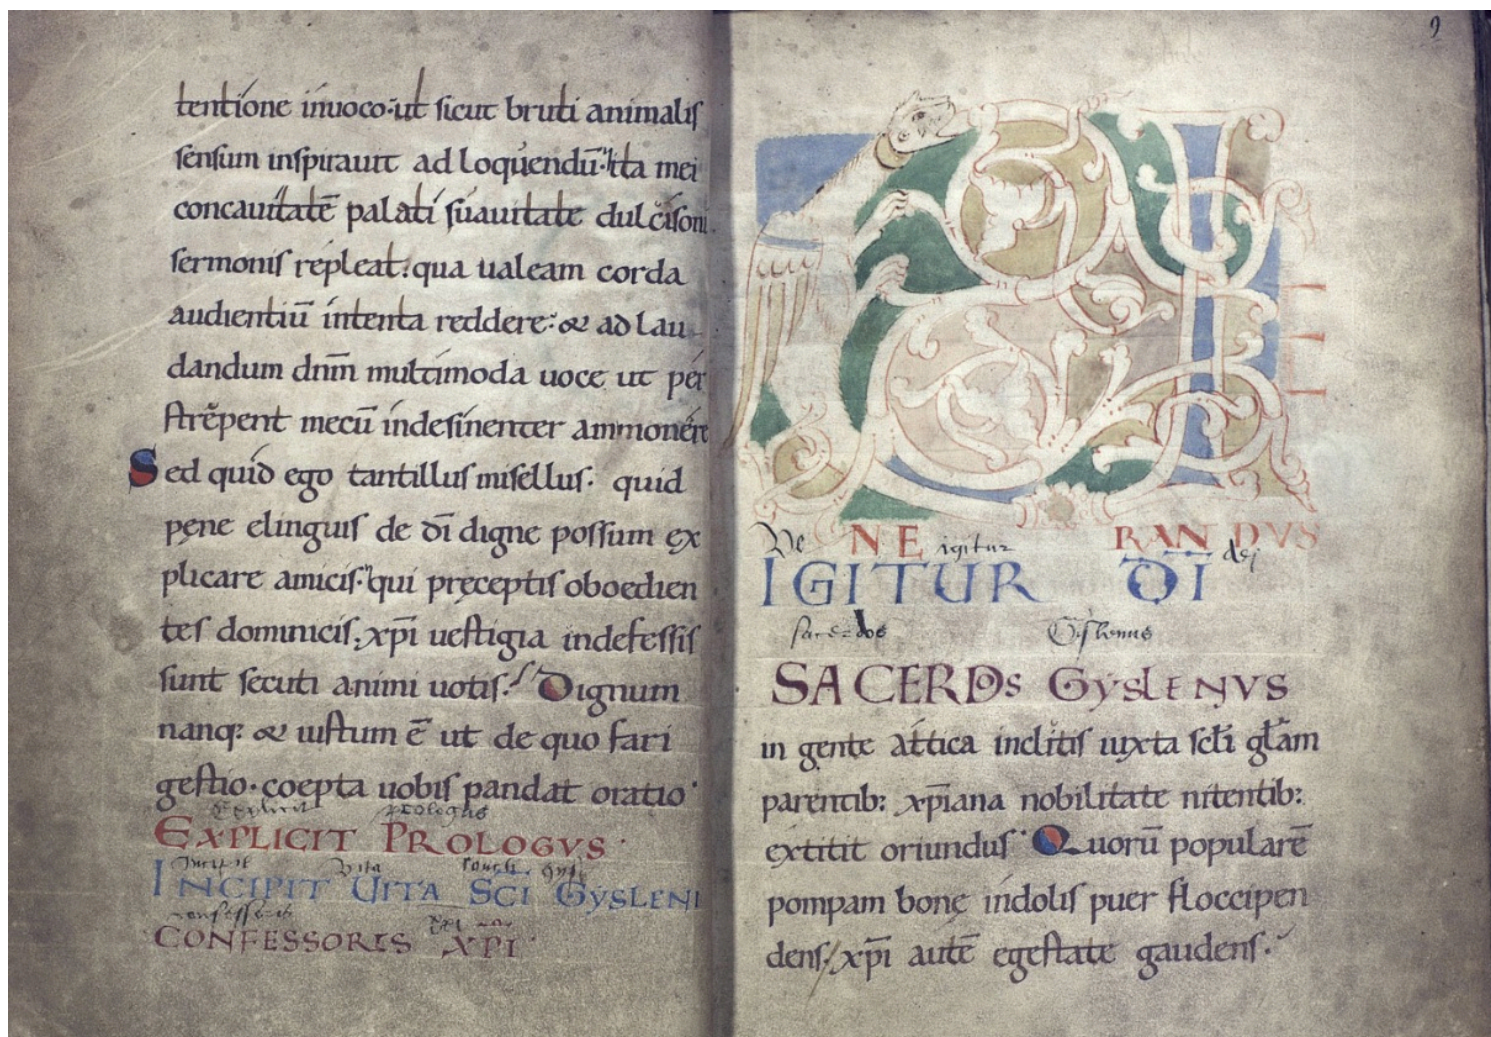 tentione inuoco·ut sicut bruti animalis
sensum inspirauit ad loquendū·ita mei
concauitatē palati suauitate dulcisoni
sermonis repleat·qua ualeam corda
audientiū intenta reddere·& ad lau-
dandum dnm̄ multimoda uoce ut per
strepent mecū indesinenter ammonere
Sed quid ego tantillus misellus· quid
pene elinguis de dī digne possum ex
plicare amicis·qui pręceptis oboedien
tes dominicis, xp̄i uestigia indefessis
sunt secuti animi uotis. Dignum
nanq: & iustum ē ut de quo fari
gestio·coepta uobis pandat oratio·
Explicit prologus
EXPLICIT PROLOGVS·
Incipit Vita
INCIPIT UITA SCI GYSLENI
confessoris
CONFESSORIS XP̄I·
9
Ve igitur dei
VENERANDVS
IGITUR DĪ
sacerdos Gislenus
SACERDOS GYSLENVS
in gente attica inclitis iuxta scl̄i gl̄am
parentib: xp̄iana nobilitate nitentib:
extitit oriundus· Quorū popularē
pompam bonę indolis puer floccipen
dens, xp̄i autē egestate gaudens·